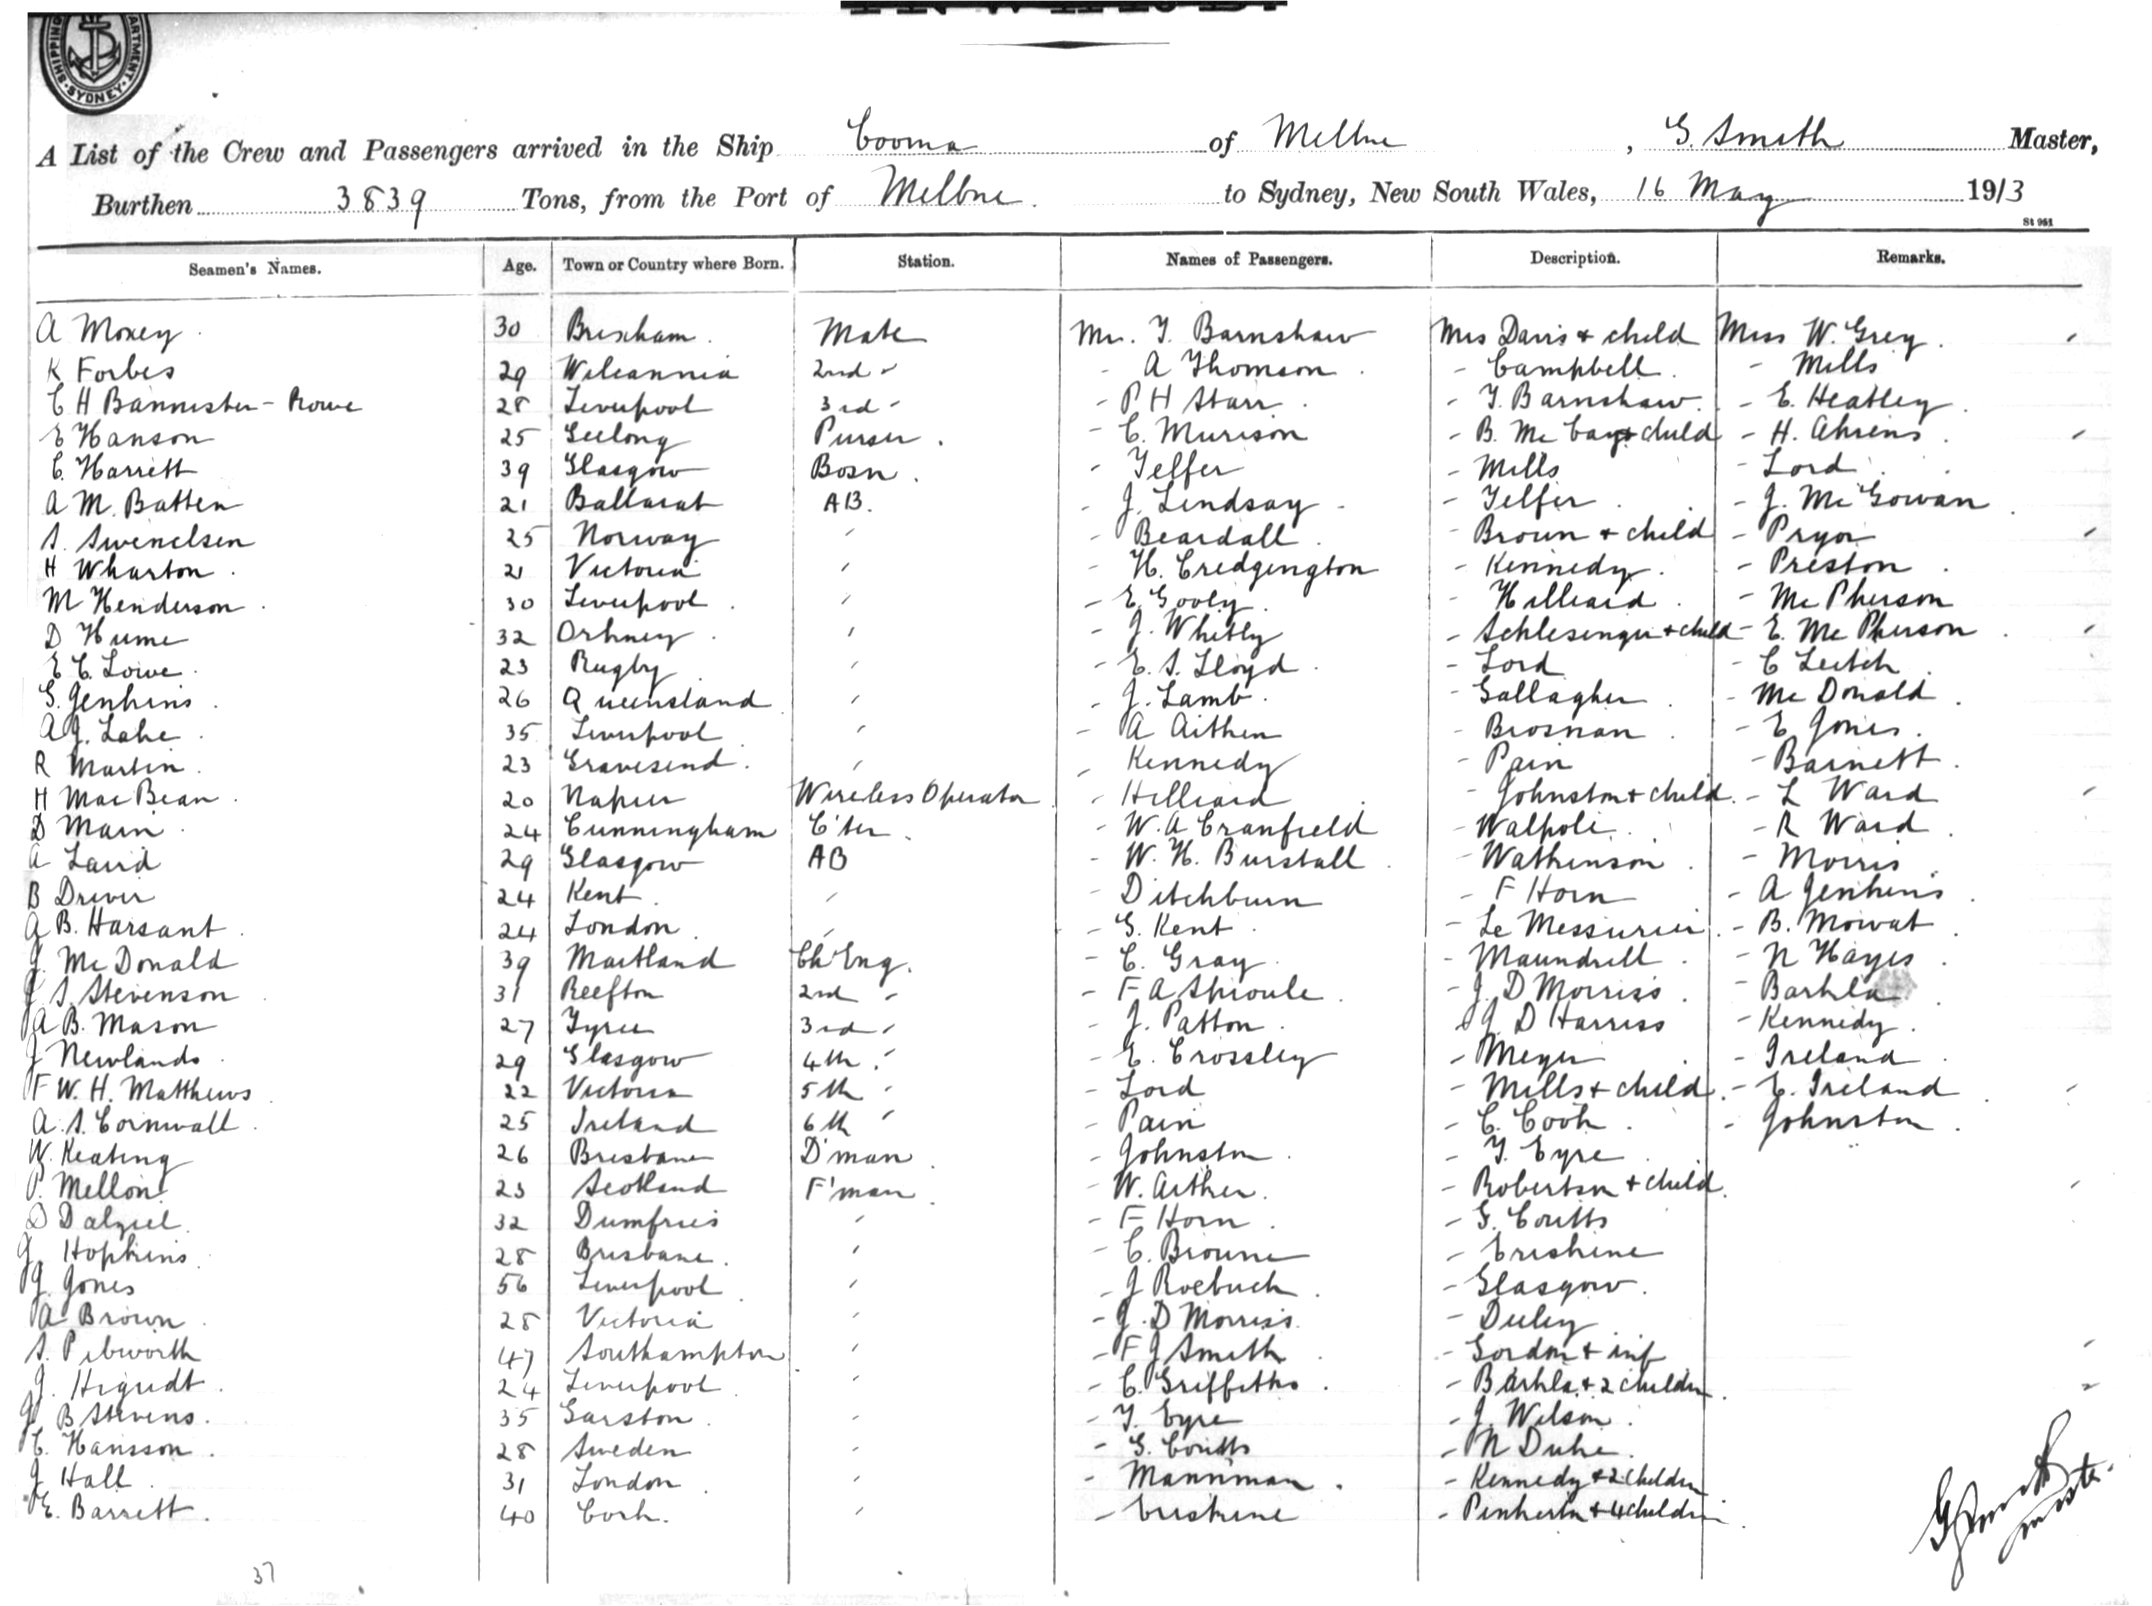 SHIPPING DEPARTMENT SYDNEY
A List of the Crew and Passengers arrived in the Ship Cooma of Melbne, G. Smith Master,
Burthen 3839 Tons, from the Port of Melbne. to Sydney, New South Wales, 16 May 1913
St 951
Seamen's Names. Age. Town or Country where Born. Station. Names of Passengers. Description. Remarks.
A Moxey 30 Brixham Mate Mr. T. Barnshaw Mrs Davis + child Miss W. Grey
K Forbes 29 Wilcannia 2nd " - A Thomson - Campbell - Mills
C H Bannister-Rowe 28 Liverpool 3rd " - P H Starr - T. Barnshaw - E. Heatley
E Hanson 25 Geelong Purser - C. Murison - B. McCay + child - H. Ahrens
C. Harrett 39 Glasgow Bosn - Telfer - Mills - Lord
A M. Batten 21 Ballarat AB. - J. Lindsay - Telfer - J. McGowan
S. Swenelsen 25 Norway " - Beardall - Brown + child - Pryor
H Wharton 21 Victoria " - H. Credgington - Kennedy - Preston
M Henderson 30 Liverpool " - E. Gooly - Hilliard - McPherson
D Hume 32 Orkney " - J. Whitly - Schlesinger + child - E. McPherson
E C. Lowe 23 Rugby " - E. S. Lloyd - Lord - C Leitch
G. Jenkins 26 Queensland " - J. Lamb - Gallagher - McDonald
A J. Lake 35 Liverpool " - A Aitken - Brosnan - E Jones
R Martin 23 Gravesend " - Kennedy - Pain - Barnett
H MacBean 20 Napier Wireless Operator - Hilliard - Johnston + child - L Ward
D Main 24 Cunningham C'ter - W. A Cranfield - Walpole - R Ward
A Laird 29 Glasgow AB - W. H. Burstall - Watkinson - Morris
B Driver 24 Kent " - Ditchburn - F Horn - A Jenkins
J B. Harsant 24 London " - G. Kent - Le Messurier - B. Mowat
J. McDonald 39 Maitland Ch Eng. - C. Gray - Maundrell - N Hayes
J S. Stevenson 31 Reefton 2nd " - F A Sproule - J. D Morriss - Barkla
A B. Mason 27 Tyree 3rd " - J. Patton - J. D Harriss - Kennedy
J Newlands 29 Glasgow 4th " - E. Crossley - Meyer - Ireland
F W. H. Matthews 22 Victoria 5th " - Lord - Mills + child - E. Ireland
A. S. Cornwall 25 Ireland 6th " - Pain - C. Cook - Johnston
W. Keating 26 Brisbane D'man - Johnston - T. Eyre
P. Mellon 23 Scotland F'man - W. Aitken - Robertson + child
D Dalziel 32 Dumfries " - F Horn - G. Coutts
J Hopkins 28 Brisbane " - C. Browne - Erskine
J. Jones 56 Liverpool " - J Roebuck - Glasgow
A Brown 28 Victoria " - J. D Morriss - Duley
S. Pibworth 47 Southampton " - F J Smith - Gordon + inf
J. Higudt 24 Liverpool " - C. Griffiths - Barkla + 2 children
J B Stevens 35 Garston " - T. Eyre - J. Wilson
C. Hansson 28 Sweden " - G. Coutts - N Duke
J Hall 31 London " - Manniman - Kennedy + 2 children
E. Barrett 40 Cork " - Erskine - Pinkerton + 4 children
G Smith
master
37